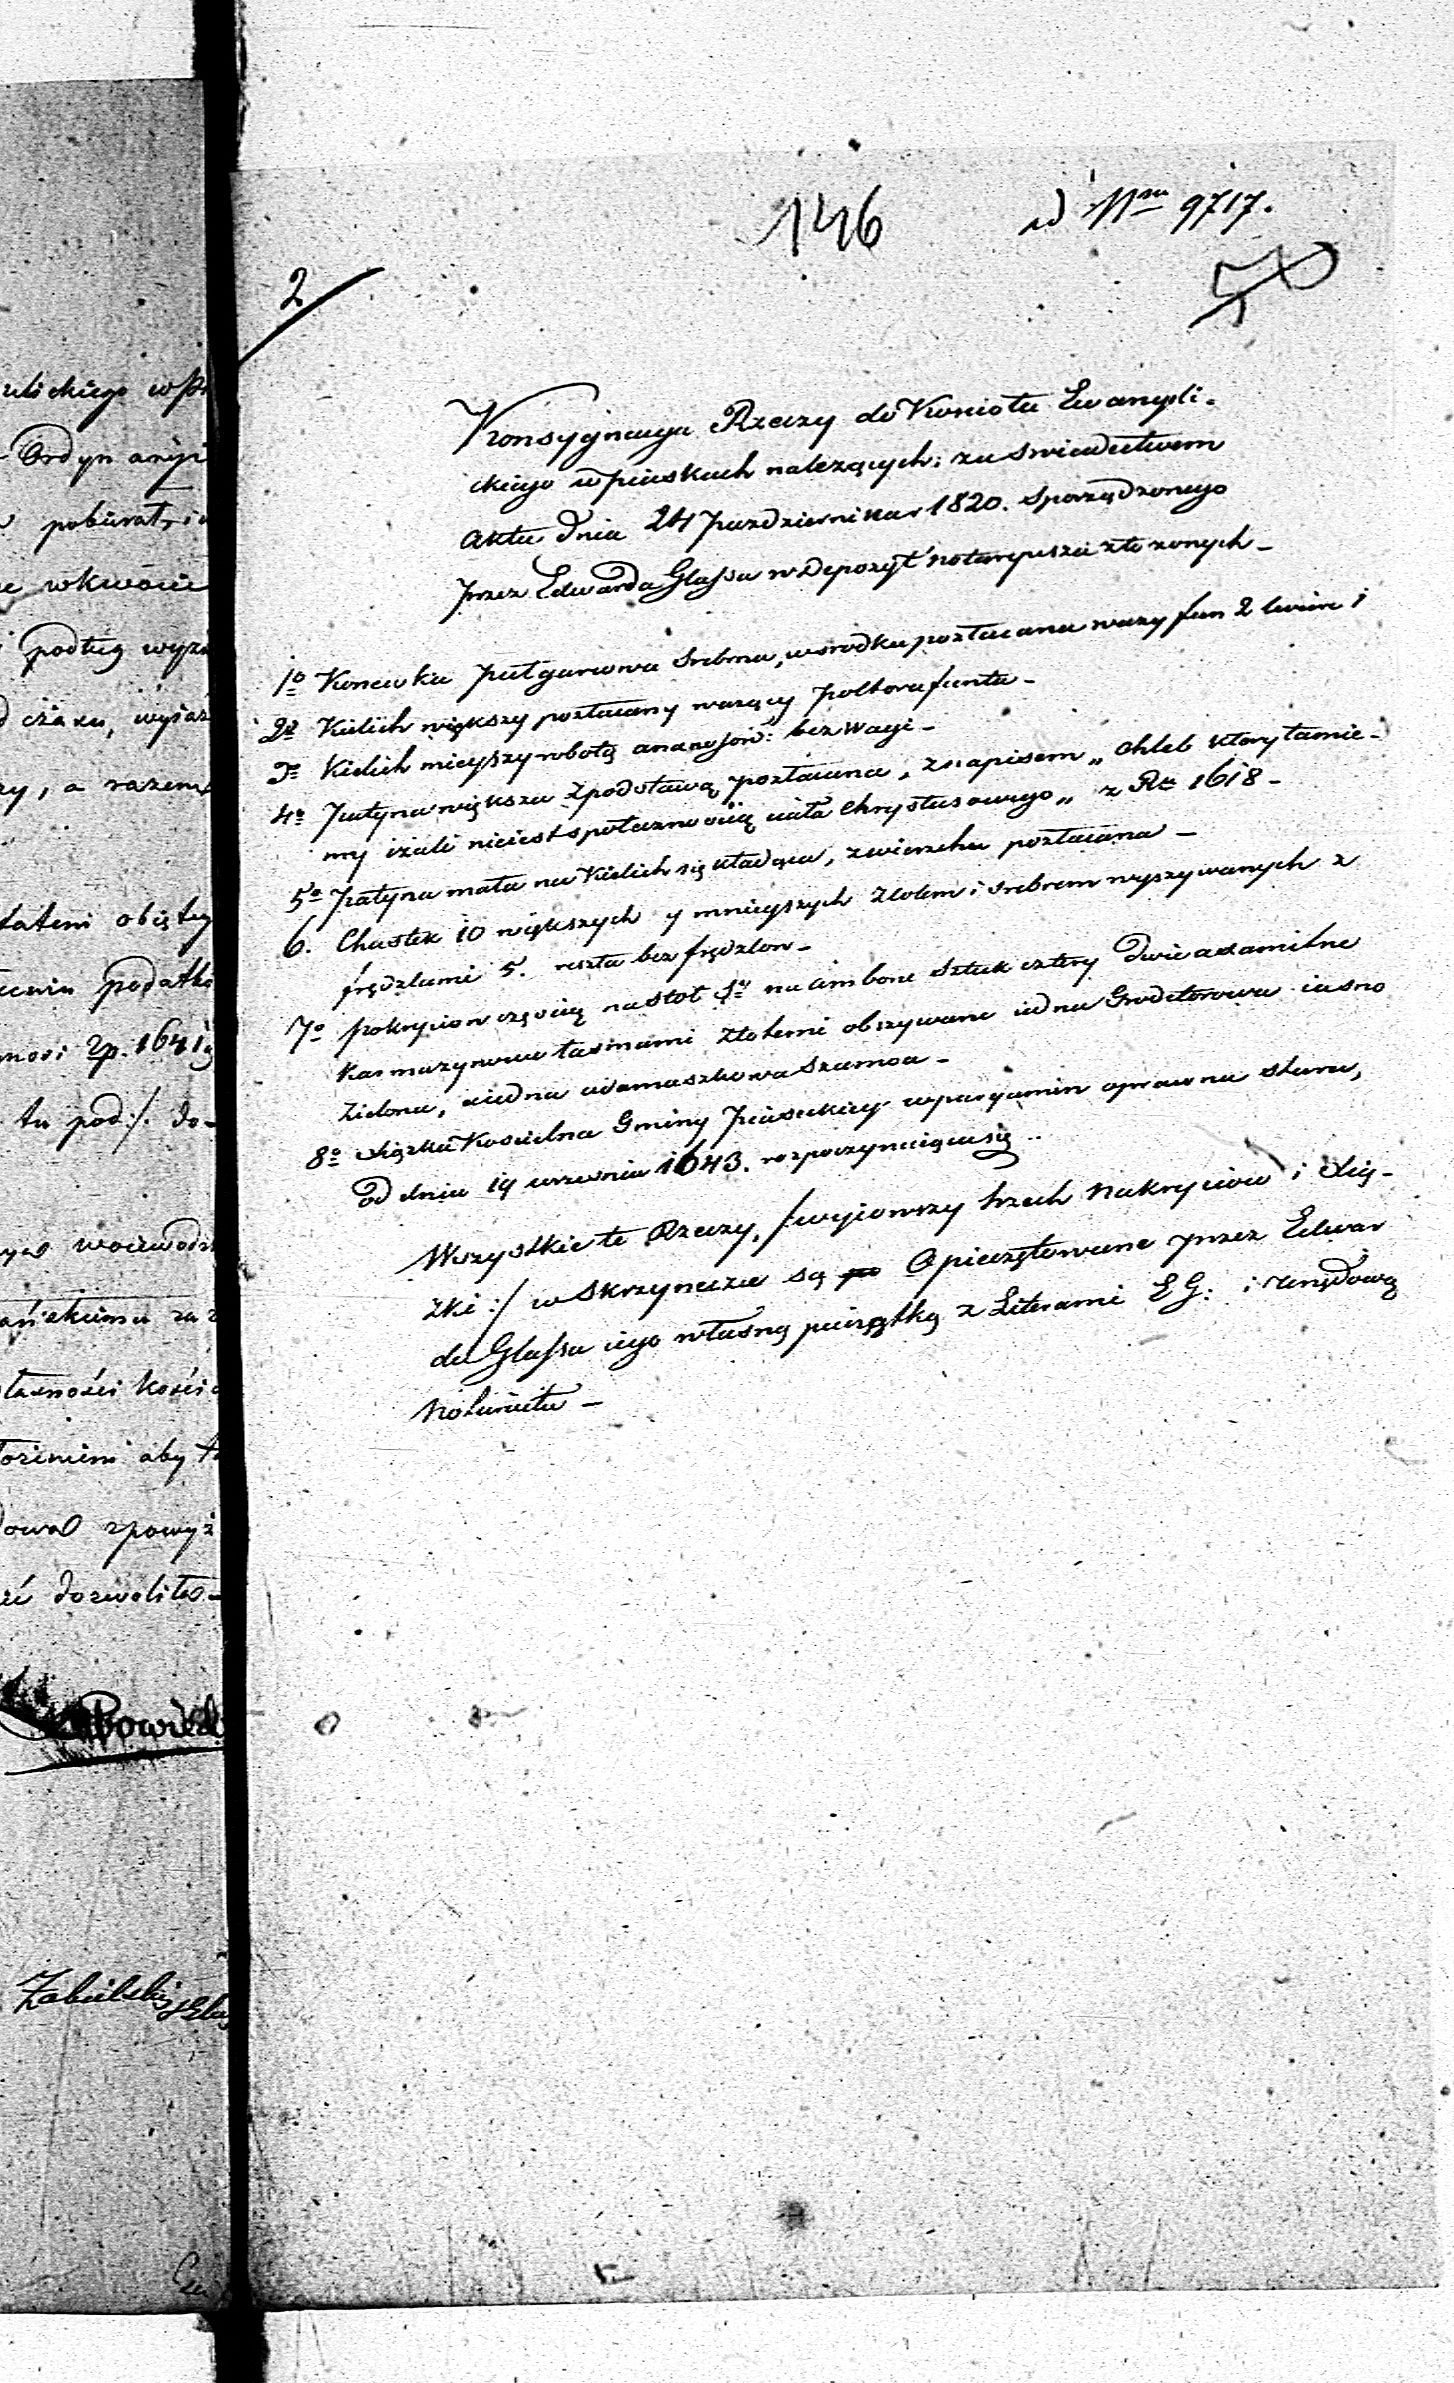 146
ad Nrm 9717.
2
Konsygnacya Rzeczy do Kościoła Ewangeli-
ckiego w Piaskach należących; za świadectwem
aktu dnia 24 Pazdziernika 1820. sporządzonego
przez Edwarda Glassa w Depozyt notaryusza złożonych -
1o Konewka pułgarcowa srebrna, wsrodku pozłacana waży fun 2 łutów 1
2o Kielich większy pozłacany ważący połtora funta -
3o Kielich mieyszy robotą ananasów: bez wagi -
4o Patyna większa z podstawą pozłacana, z napisem „ chleb ktory łamie-
my izali nieiest społecznością ciała Chrystusowego „ z Rku 1618 -
5o Patyna mała na Kielich się kładąca, zwierzchu pozłacana -
6. Chustek 10 większych y mnieyszych złotem i srebrem wyszywanych z
frędzlami 5. reszta bez frędzlow -
7o pokryciow częścią na stoł na ambone sztuk cztery dwie axamitne
karmazynowe tasmami złotemi obszywane iedna Grodeterowa iasno
zielona, a iedna adamaszkowa szamoa -
8o xiązka Kościelna Gminy Piaseckiey w pargamin oprawna stara,
od dnia 19 września 1643. rozpoczynaiąca się ..
Wszystkie te Rzeczy, /: wyiąwszy trzech nakryciow i xią-
żki :/ w skrzyneczce są Opieczętowane przez Edwar
da Glassa iego własną pieczątką z Literami E G: i urzędową
Notariatu -
ulickiego
Ordynaryi
pobierał,
w kwocie
podług
czasu,
y, a razem
podatko
Zp. 1641
tu pod :/. do-
woiewodz
aby
dozwolił -
Zabielski